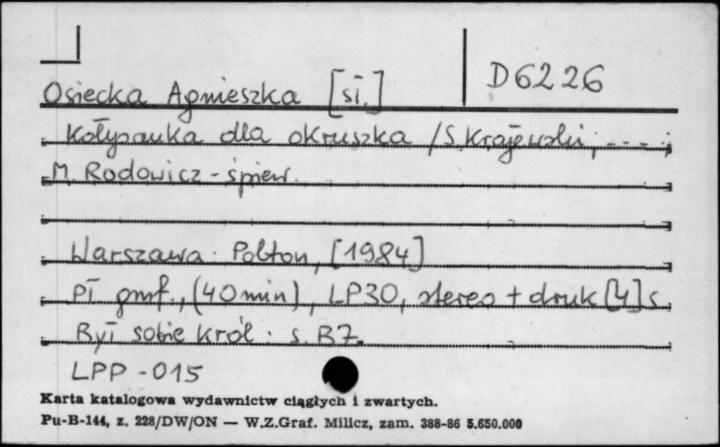 D6226
Osiecka Agnieszka [sł.]
Kołysanka dla okruszka / S. Krajewski, - - - ;
M. Rodowicz - śpiew.
Warszawa : Polton, [1984]
Pł gmf., (40 min), LP30, stereo + druk [4] s
Był sobie król : s. B7.
LPP - 015
Karta katalogowa wydawnictw ciągłych i zwartych.
Pu-B-144, z. 228/DW/ON — W.Z.Graf. Milicz, zam. 388-86 5.650.000